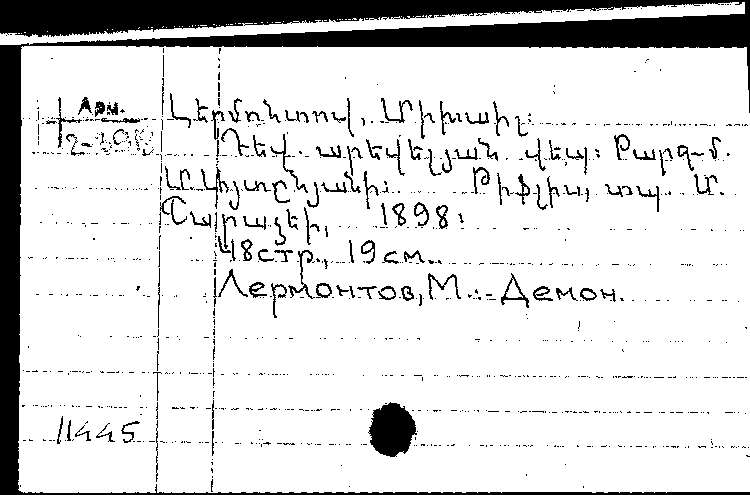 Арм.
2-398
Լերմոնտով, Միխայիլ:
Դեվ. արևելյան վեպ: Թարգ-մ.
Թիֆլիս, տպ. Մ.
Շարաձեի, 1898:
48 стр., 19 см..
Лермонтов, М.:- Демон.
11445